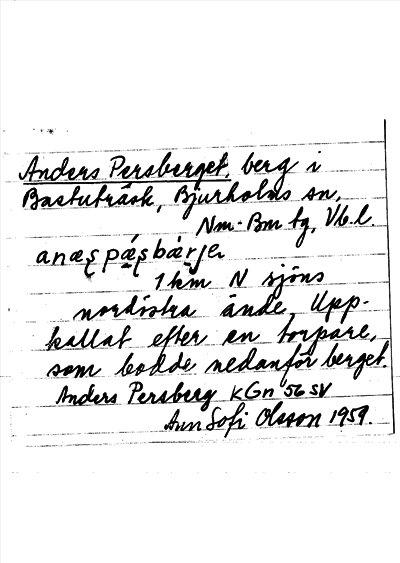 Anders Persberget, berg i
Bastuträsk, Bjurholms sn,
Nm-Bm tg, Vb.l.
anæʂpǽʂbærjer
1 km N sjöns
nordöstra ände. Upp-
kallat efter en torpare,
som bodde nedanför berget.
Anders Persberg KGn 56 SV
Ann Sofi Olsson 1959.